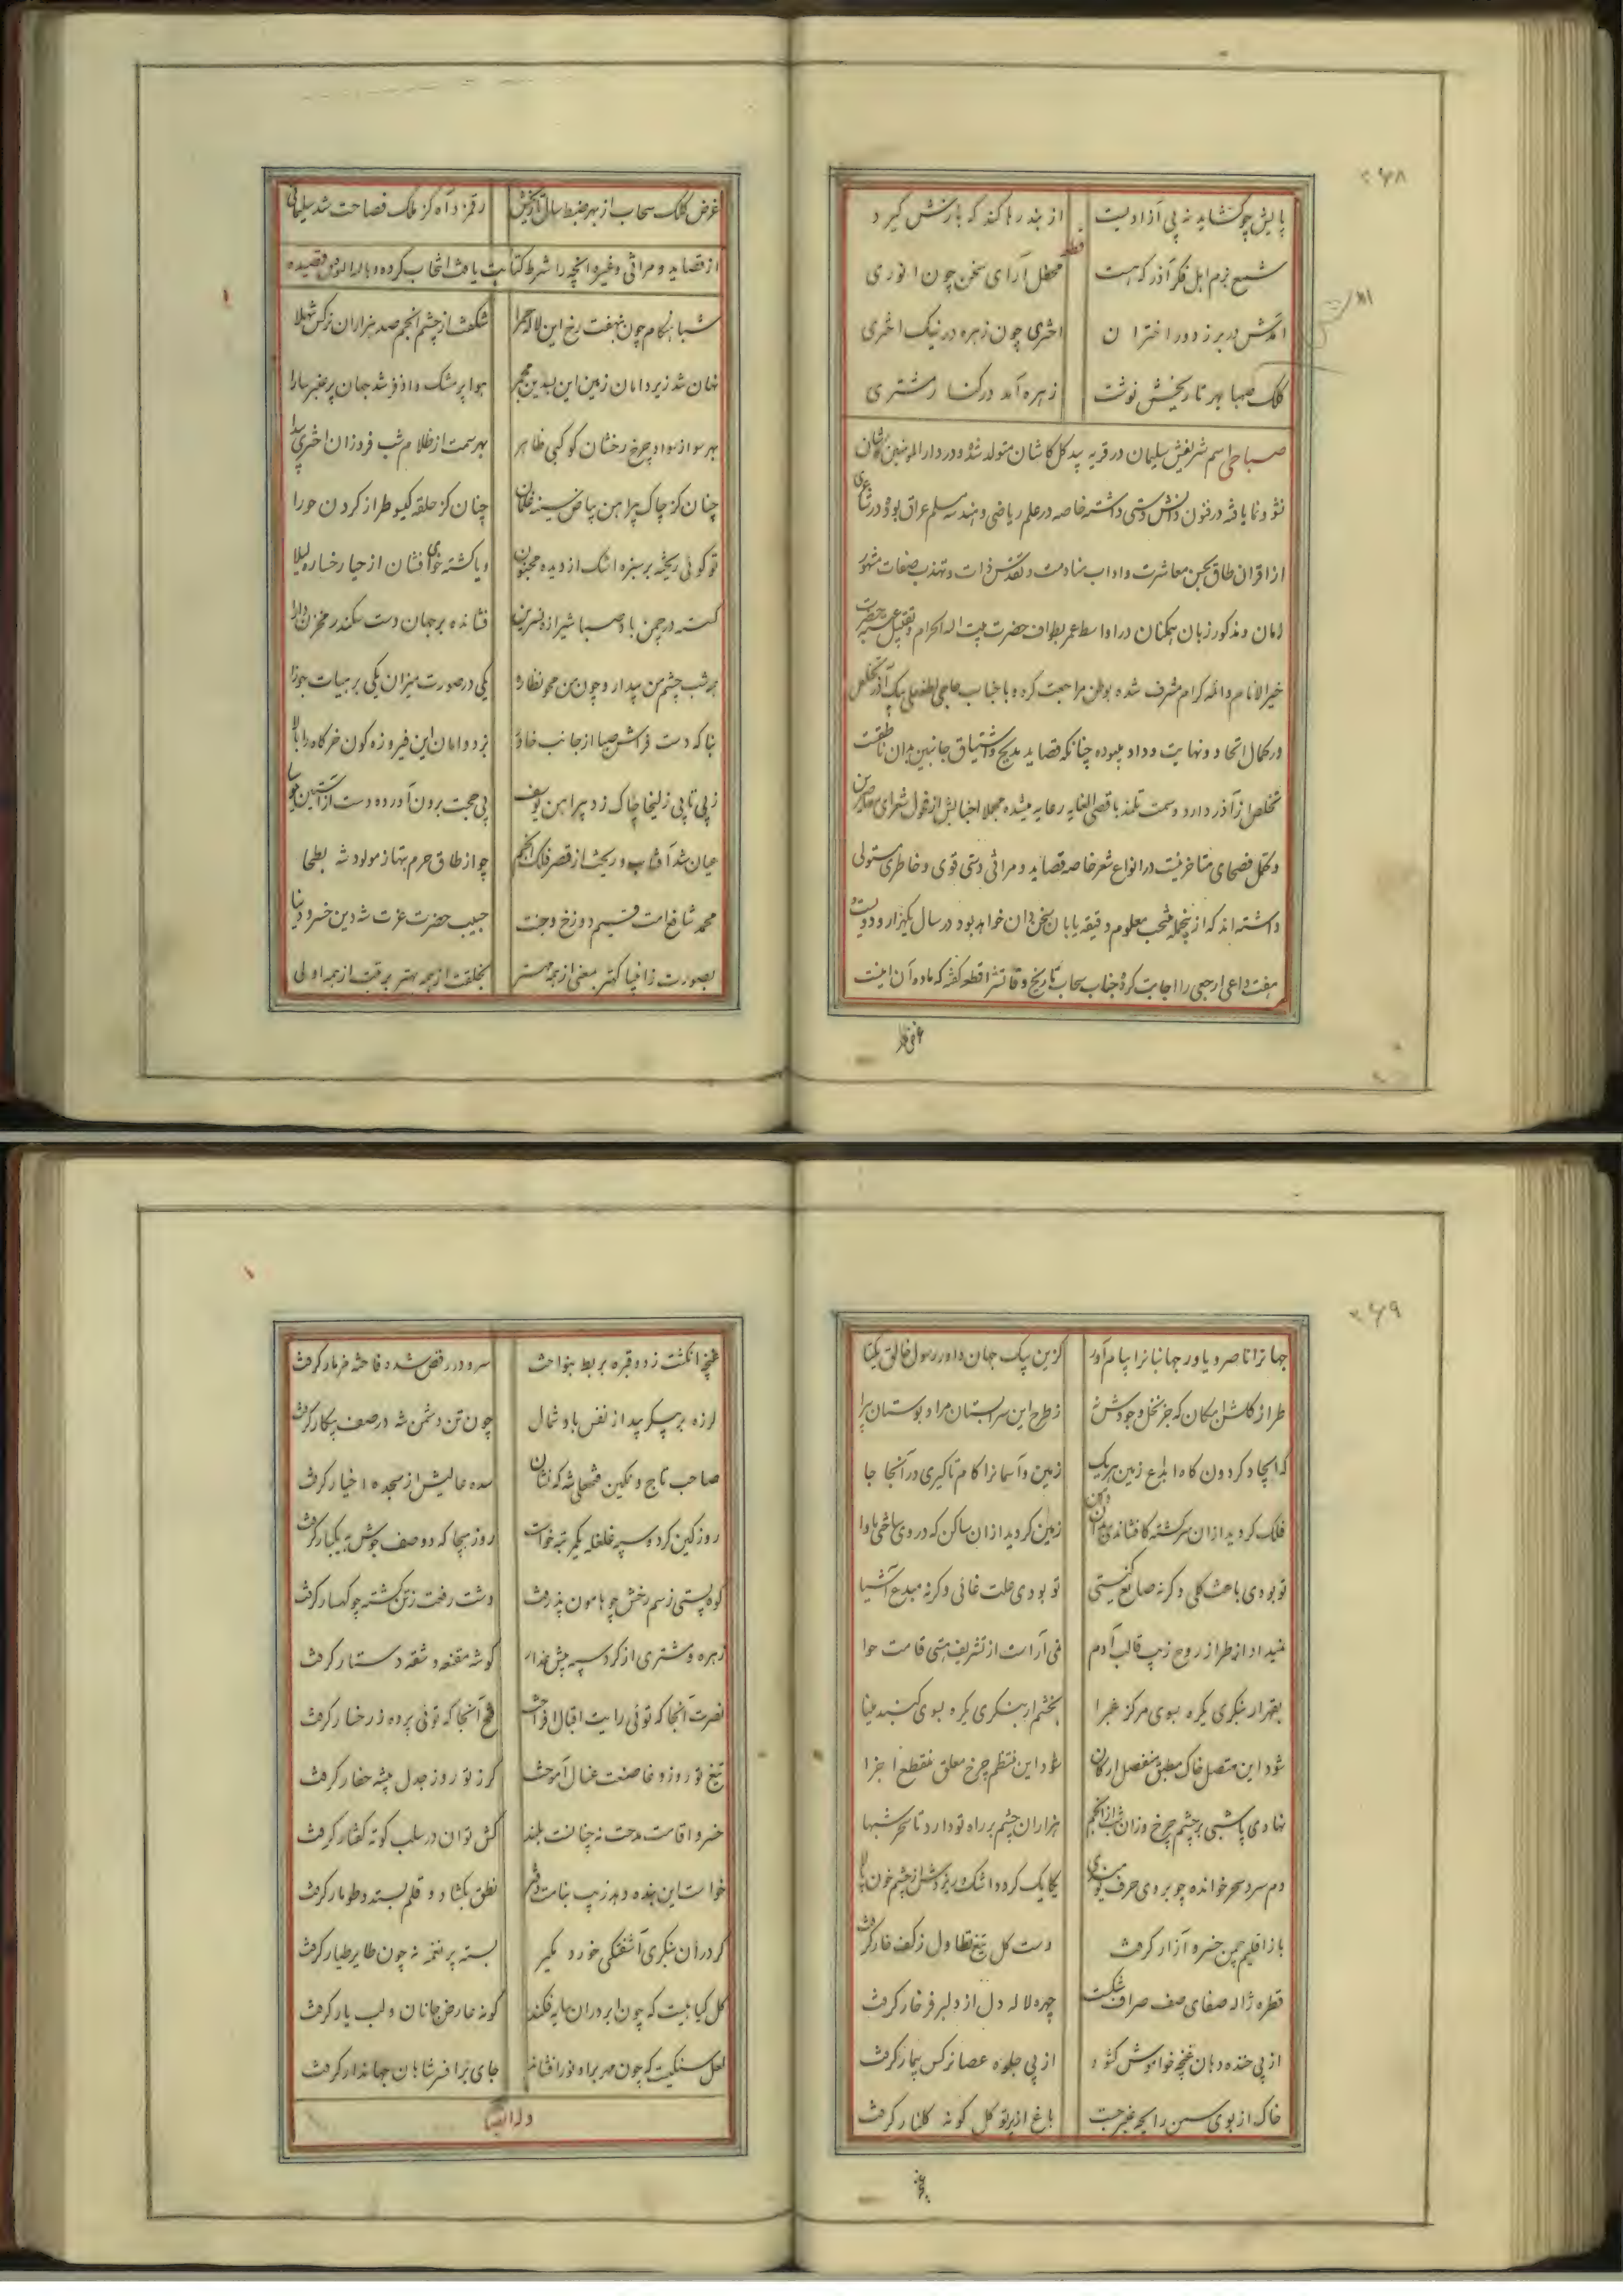 ۲۶۸
پایش چو گشاید نه پی آزادیست از بند رها کند که بازش گیرد
قطعه
شمع بزم اهل فکر آذر که هست محفل آرای سخن چون انوری
آمدش در بر ز دور اختران اختری چون زهره در نیک اختری
کلک صهبا بهر تاریخش نوشت زهره آمد در کنار مشتری
صباحی اسم شریفش سلیمان در قریه بیدگل کاشان متولد شده و در دارالمومنین کاشان
نشو و نما یافته در فنون دانش دستی داشته خاصه در علم ریاضی و هندسه مسلم عراق بوده و در شاعری
از اقران طاق بحسن معاشرت و اداب منادمت و تقدس ذات و تهذیب صفات مشهور
زمان و مذکور زبان همکنان در اواسط عمر بطواف حضرت بیت اله الحرام و تقبیل حضرت
خیر الانام واله کرام مشرف شده بوطن مراجعت کرده و با جناب حاجی لطفعلی بیک آذر تخلص
در کمال اتحاد و نهایت وداد میبوده چنانکه قصاید مدیح و اشتیاق جانبین بدان ناطقست
تخلص از آذر دارد و سمت تلمذ باقصی الغایه رعایه میشده مجملا اجنابش از فحول شعرای معاصرین
و کمل فصحای متاخرینست در انواع شعر خاصه قصاید و مراثی دستی قوی و خاطری مستولی
داشته اند که از پنجمله منتخب معلوم دقیقه یابان سخن دان خواهد بود در سال یکهزار و دویست و
هفت داعی ارجعی را اجابت کرده جناب سحاب تاریخ وفاتش را قطعه گفته که ماده آن اینست
غرض کلک سحاب از بهر ضبط سال تاریخش رقم زد آه کز ملک فصاحت شد سلیمانی
از قصاید و مراثی و غیره انچه را شرط کتابت یافت انتخاب کرده و قصیده
شبا هنگام چون بنهفت رخ این لاله حمرا شکفت از چشم انجم صد هزاران نرکس شهلا
نهان شد زیر دامان زمین این بسدین مجمر هوا پر مشک و اذفر شد جهان پر عنبر سارا
بهر سو از سواد چرخ رخشان کوکبی ظاهر بهر سمت از ظلام شب فروزان اختری پیدا
چنان کز چاک پیراهن بیاض سینه غلمان چنان کز حلقه کیسو طراز کردن حورا
تو کوئی ریخته بر سبزه اشک از دیده مجنون و یا کشته خوی افشان از حیا رخساره لیلا
کسسته در چمن باد صبا شیرازه نسرین فشانده بر جهان دست سکندر مخزن دارا
همه شب چشم من بیدار و چون من محو نظاره یکی در صورت میزان یکی بر هیات جوزا
بناکه دست فراش صبا از جانب خاور بزد دامان این فیروزه کون خرکاه را بالا
ز بی تابی زلیخا چاک زد پیراهن یوسف پی حجت برون آورده دست از آستین موسا
عیان شد آفتاب و ریخت از قصر فلک انجم چو از طاق حرم بتها ز مولود شه بطحا
محمد شافع امت قسیم دوزخ و جنت حبیب حضرت عزت شه دین خسرو دنیا
بصورت ز انبیا کهتر بمعنی از همه مهتر بخلقت از همه بهتر برتبت از همه اولی
۲۶۹
جهانرا ناصر و یاور جهانبانرا پیام آور کزین پیک جهان داور رسول خالق یکتا
طراز کلشن امکان که جز نخل وجودش ز طرح این سرابستان مراد بوستان پیرا
زمین و آسمانرا کام تا کیری در آنجا جا
فلک کردید از آن سرکشته زمین کردید از ان ساکن که در وی ساختی ماوا
تو بودی باعث کلی و کرنه صانع کستی تو بودی علت غائی و کرنه مبدع اشیا
نمیداد از طراز روح زیب قالب آدم نمی آراست از تشریف هستی قامت حوا
بقهر ار بنکری یکره بسوی مرکز غبرا بخشم ار بنکری یکره بسوی کنبد مینا
شود این متصل خاک مطبق منفصل ارکان شود این منتظم چرخ معلق منقطع اجزا
نهادی پا شبی بر چشم چرخ وزان شب از انجم هزاران چشم بر راه تو دارد تا سحر شبها
دم سرد سحر خوانده چو بر وی حرف یکایک کردد اشک ریزدش از چشم خون پالا
باز اقلیم چمن خسرو آزار کرفت دست کل تیغ تطاول ز کف خار کرفت
قطره ژاله صفای صف صراف شکست چهره لاله دل از دلبر فرخار کرفت
از پی خنده دهان غنچه خواموش کشود از پی جلوه عصا نرکس بیمار کرفت
خاک از بوی سمن رایحه عنبر جست باغ از پرتو کل کونه کلنار کرفت
غنچه
غنچه انکشت زد و قمره بربط بنواخت سرو در رقص شد و فاخته مزمار کرفت
لرزه بر پیکر بید از نفس باد شمال چون تن دشمن شه در صف پیکار کرفت
صاحب تاج و نکین فتحعلی شه که نشان سده عالیش از سجده اخیار کرفت
روز کین کرد سپه غلغله یکمرتبه خواست روز هیجا که دو صف جوش به یکبار کرفت
کوه پستی ز سم رخش چو هامون پذرفت دشت رفعت ز تن کشته چو کهسار کرفت
زهره و مشتری از کرد سپه پیش عذار کوشه مقنعه و شقه دستار کرفت
نصرت آنجا که توئی رایت اقبال افراخت فتح آنجا که توئی پرده ز رخسار کرفت
تیغ تو روز وغا صنعت غسال آموخت کرز تو روز جدل پیشه حفار کرفت
خسروا قامت مدحت نه چنانست بلند کش توان در سلب کوته کفتار کرفت
خواست این بنده دهد زیب نطق بکشاد و قلم بسته و طومار کرفت
کر در آن بنکری آشفتکی خورده مکیر بسته پر نغمه نه چون طایر طیار کرفت
کل کیا هیست که چون ابر در ان سایه فکند کونه عارض جانان و لب یار کرفت
لعل سنکیست که چون مهر براو نور افشاند جای بر افسر شاهان جهاندار کرفت
وله ایضا